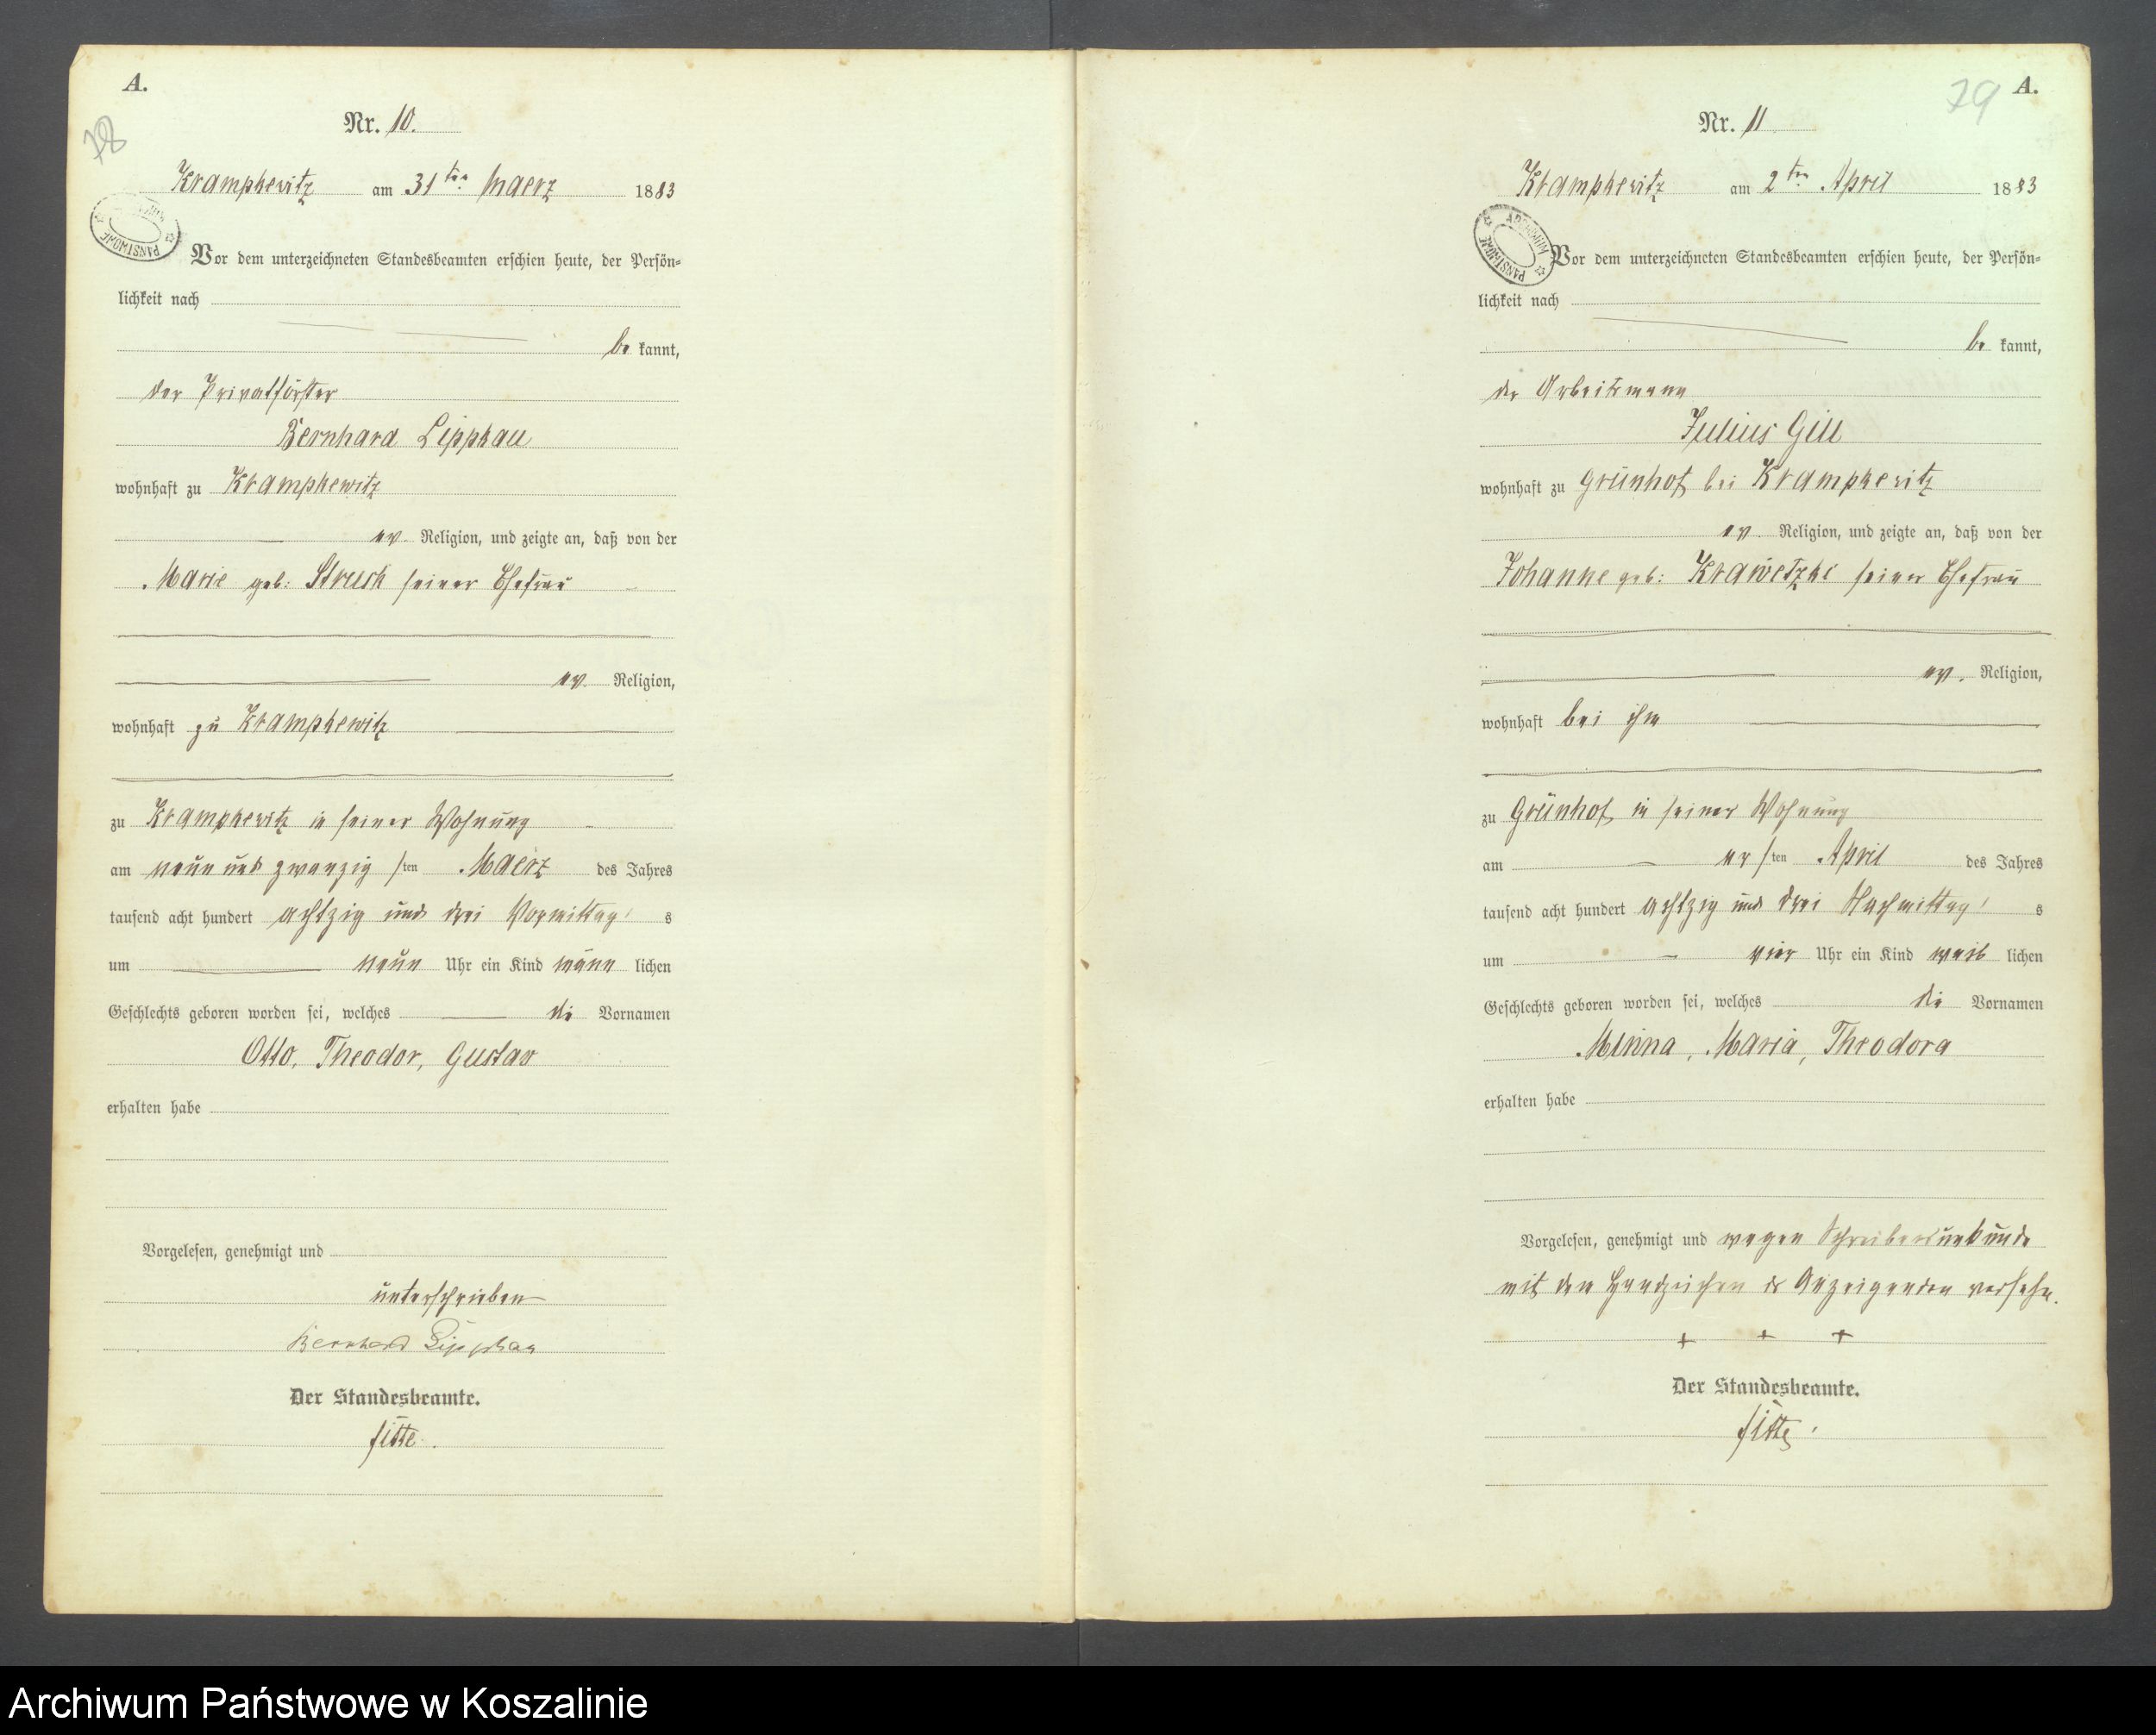 A.
78
Nr. 10.
Kramphewitz am 31ten Maerz 1883
Vor dem unterzeichneten Standesbeamten erschien heute, der Persön-
lichkeit nach
be kannt,
der Privatförster
Bernhard Lipphau
wohnhaft zu Kramphewitz
ev. Religion, und zeigte an, daß von der
Marie geb: Struck seiner Ehefrau
ev. Religion,
wohnhaft zu Kramphewitz
zu Kramphewitz in seiner Wohnung
am neun und zwanzig sten Maerz des Jahres
tausend acht hundert achtzig und drei Vormittag s
um neun Uhr ein Kind männ lichen
Geschlechts geboren worden sei, welches die Vornamen
Otto, Theodor, Gustav
erhalten habe
Vorgelesen, genehmigt und
unterschrieben
Bernhard Lipphau
Der Standesbeamte.
79
A.
Nr. 11
Kramphewitz am 2ten April 1883
ARCHIWUM PAŃSTWOWE
Vor dem unterzeichneten Standesbeamten erschien heute, der Persön-
lichkeit nach
be kannt,
der Arbeitsmann
Julius Gill
wohnhaft zu Grünhof bei Kramphewitz
ev. Religion, und zeigte an, daß von der
Johanne geb: Krawetzki seiner Ehefrau
ev. Religion,
wohnhaft bei ihm
zu Grünhof in seiner Wohnung
am ersten April des Jahres
tausend acht hundert achtzig und drei Nachmittag s
um vier Uhr ein Kind weib lichen
Geschlechts geboren worden sei, welches die Vornamen
Minna, Maria, Theodora
erhalten habe
Vorgelesen, genehmigt und wegen Schreibensunkunde
mit den Handzeichen des Anzeigenden versehn.
+ + +
Der Standesbeamte.
Archiwum Państwowe w Koszalinie